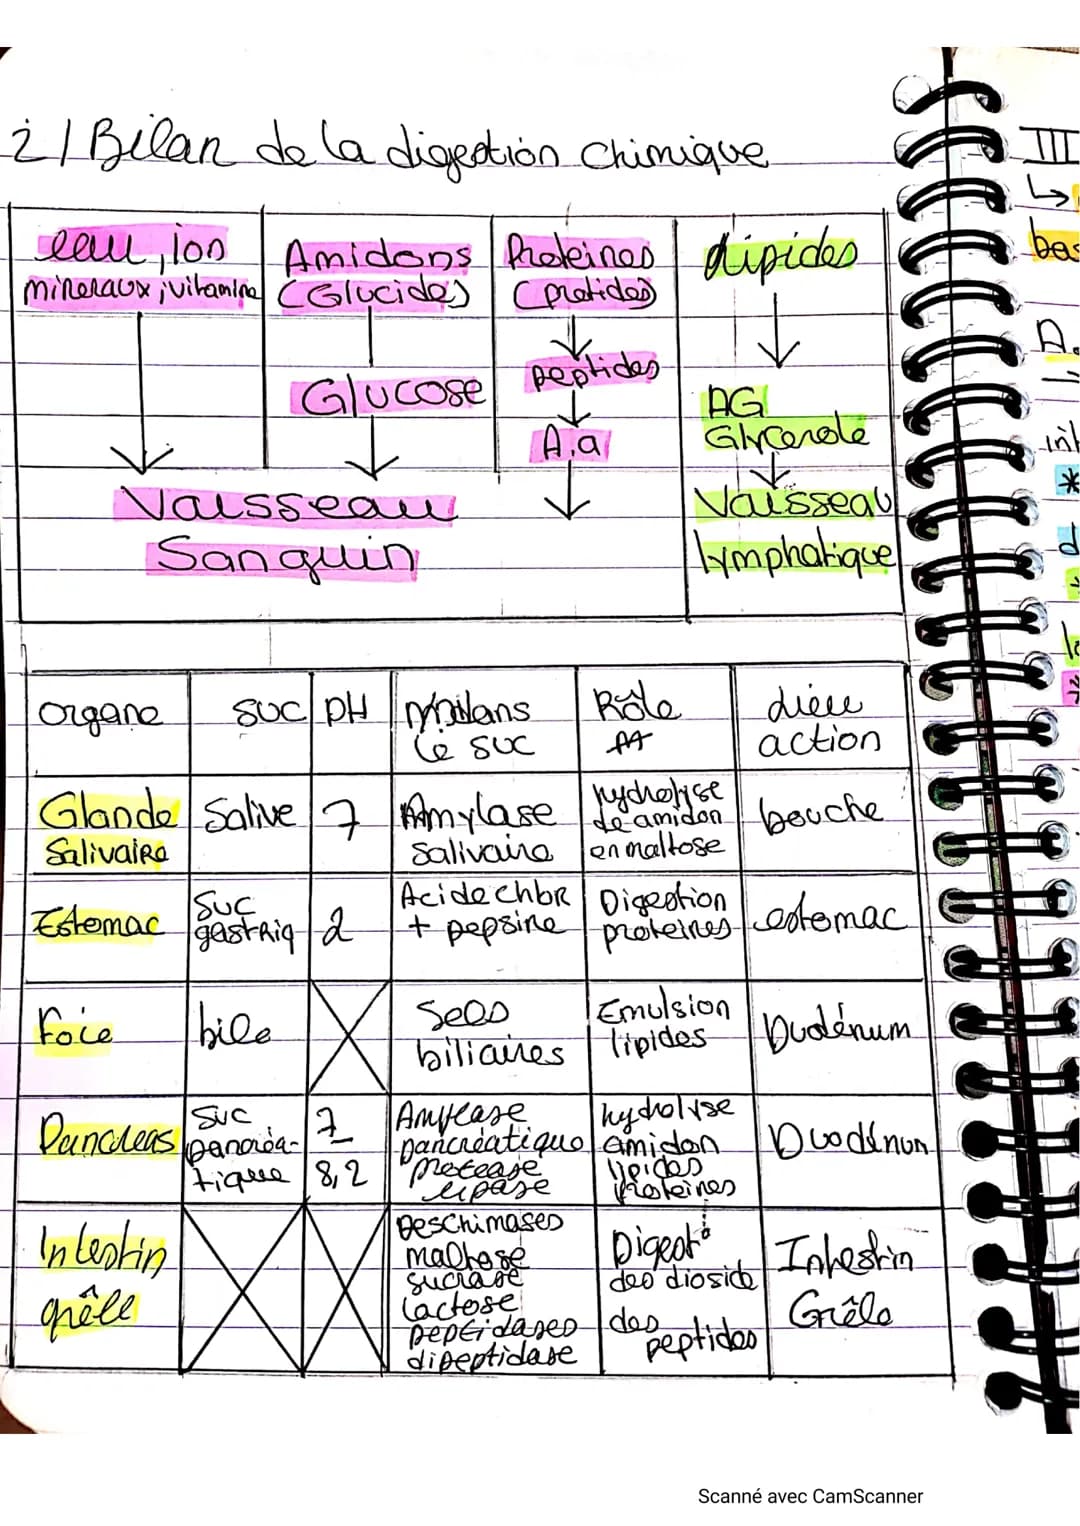 2/ Bilan de la digestion chimique
eau, ion
mineraux ; vitamine
Amidons
(Glucides)
Glucose
Proteines
(protides)
peptides
A.a
Vaisseau
Sanguin
Lipides
AG
Glycerole
Vaisseau
lymphatique
organe
suc
pH
le suc
Rôle
lieu
action
Glande
Salivaire
Salive
7
Amylase
Salivaire
hydrolyse
de amidon
en maltose
bouche
Estomac
Suc
gastriq
2
Acide chlor
+ pepsine
Digestion
proteines
estomac
Foie
bile
Sels
biliaires
Emulsion
lipides
Duodénum
Pancreas
Suc
pancréa-
tique
7
8,2
Amylase
pancréatique
protease
lipase
hydrolyse
amidon
lipides
Proteines
Duodénum
Intestin
grêle
maltose
sucrase
lactose
peptidases
dipeptidase
Digest°
des dioside
des
peptides
Intestin
Grêle
III
bas
A.
*
d
Scanné avec CamScanner